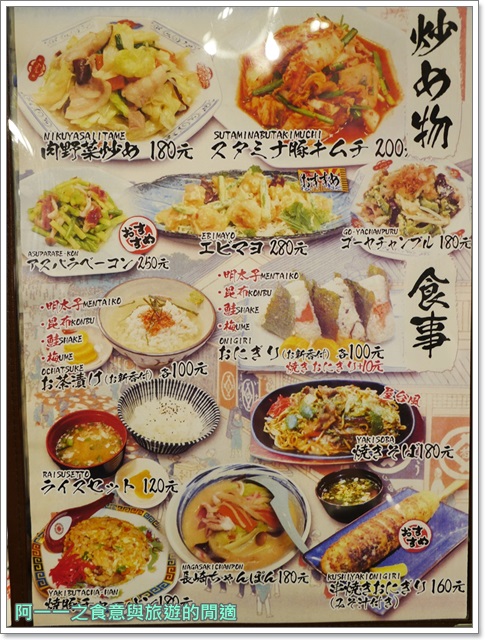 炒め物
NIKUYASAIITAME
肉野菜炒め 180元
SUTAMINABUTAKIMUCHI
スタミナ豚キムチ 200
ASUPARABE-KON
アスパラベーコン 250元
おすすめ
EBIMAYO
エビマヨ 280元
おすすめ
GO-YACHANPURU
ゴーヤチャンプル 180元
食事
・明太子MENTAIKO
・昆布KONBU
・鮭SHAKE
・梅UME
OCHATSUKE
お茶漬け(お新香付) 各100元
・明太子MENTAIKO
・昆布KONBU
・鮭SHAKE
・梅UME
ONIGIRI
おにぎり(お新香付) 各100元
焼きおにぎり10元
RAISUSETTO
ライスセット 120元
YAKISOBA
焼きそば180元
NAGASAKICHANPON
長崎ちゃんぽん180元
おすすめ
KUSHIYAKIONIGIRI
串焼きおにぎり 160元
(みそ汁付き)
阿一一之食意與旅遊的閒適